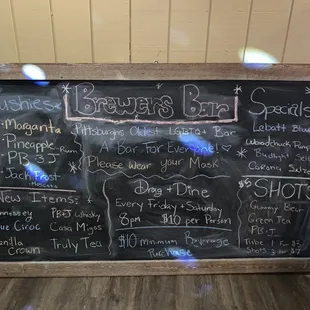 Slushies
- Margarita
- Pineapple Rum
- PB+J
- Jack Frost
- Moscato
New Items:
Hennessey
Blue Ciroc
Vanilla Crown
PB+J Whisky
Casa Migos
Truly Tea
* Brewers Bar *
Pittsburghs Oldest LGBTQ+ Bar
A Bar For Everyone!
Please Wear your Mask
Drag + Dine
Every Friday + Saturday
8pm $10 per Person
$10 Minimum Beverage
Purchase
Specials
Labatt Blue
Woodchuck
Budlight
Corona
$ SHOTS
Gummy Bear
Green Tea
PB+J
Tube 1 For $3
Shots 3 for $7